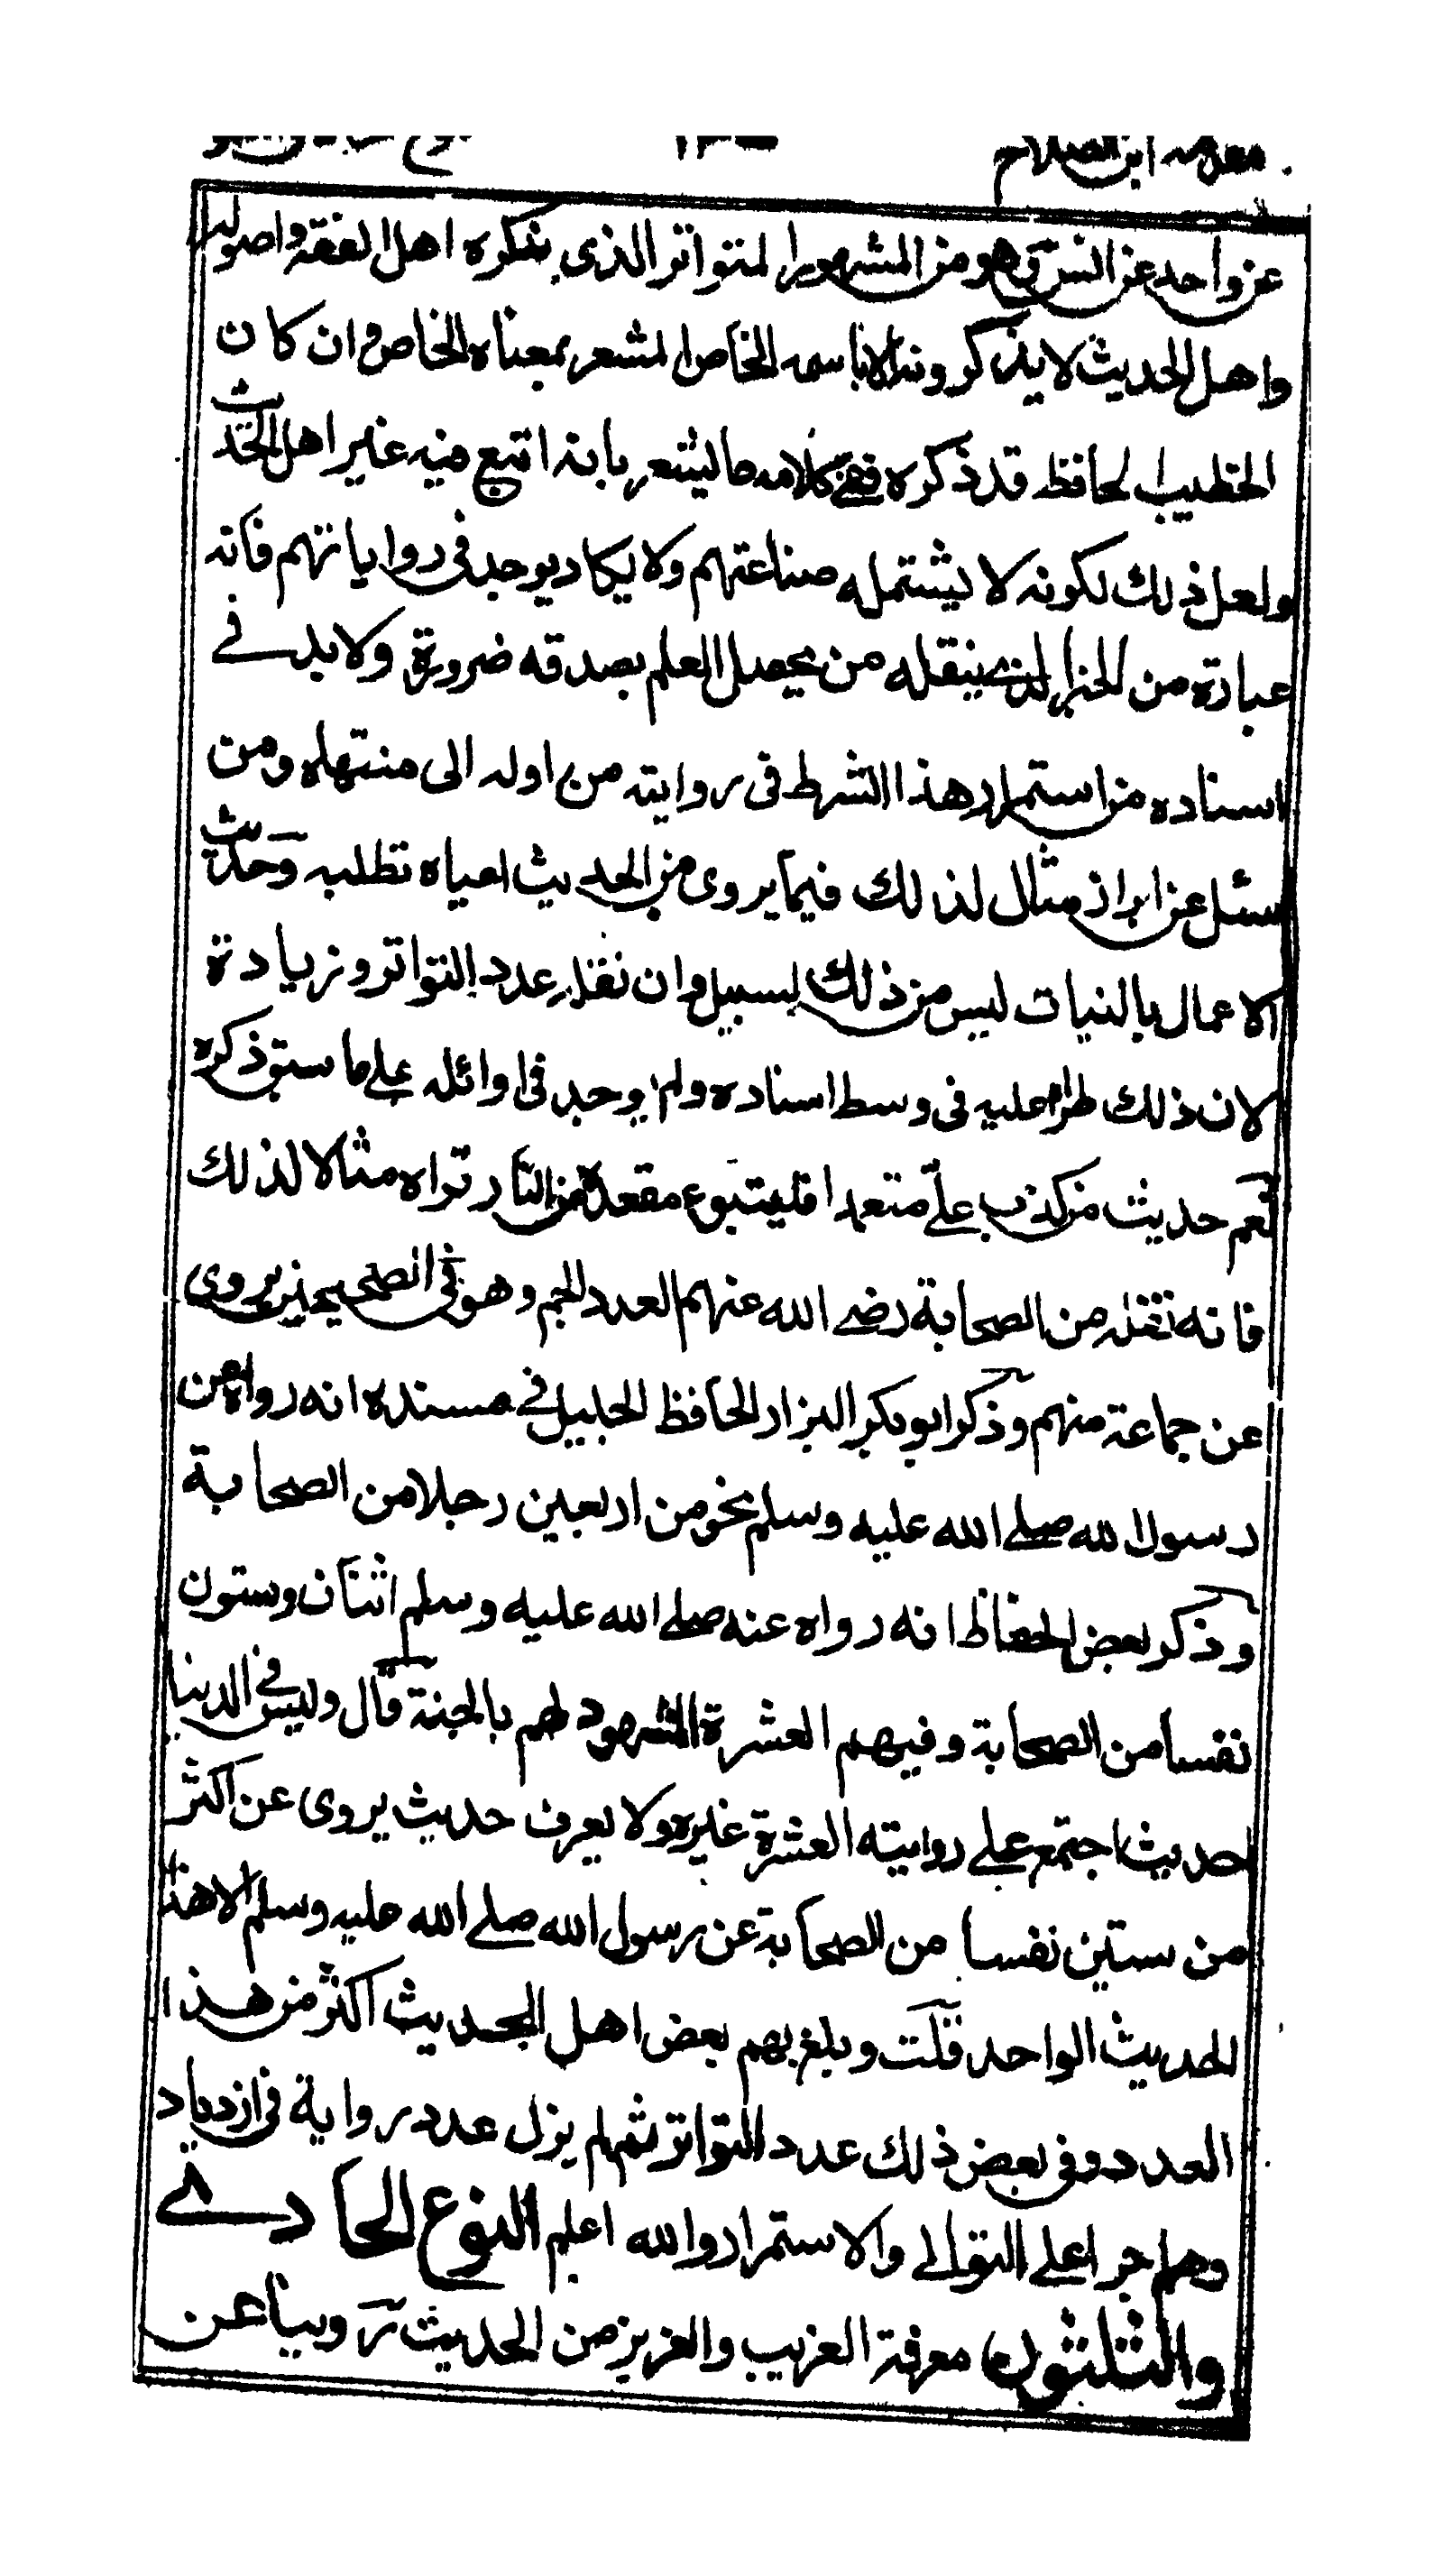 مقدمه ابن الصلاح
عن واحد عن انس ومن المشهور المتواتر الذي يذكره اهل الفقه واصوله
واهل الحديث لا يذكرونه الا باسمه الخاص المشعر بمعناه الخاص وان كان
الخطيب الحافظ قد ذكره ففي كلامه ما يشعر بانه اتبع فيه غير اهل الحديث
ولعل ذلك لكونه لا يشتمله صناعتهم ولا يكاد يوجد في رواياتهم فانه
عبارة من الخبر الذي ينقله من يحصل العلم بصدقه ضرورة ولا بد في
اسناده من استمرار هذا الشرط في روايته من اوله الى منتهاه ومن
سئل عن ابراز مثال لذلك فيما يروى من الحديث اعياه تطلبه وحديث
الاعمال بالنيات ليس من ذلك بسبيل وان نقله عدد التواتر وزيادة
لان ذلك طرأ عليه في وسط اسناده ولم يوجد في اوائله على ما سبق ذكره
نعم حديث من كذب علي متعمدا فليتبوء مقعده من النار تراه مثالا لذلك
فانه نقله من الصحابة رضي الله عنهم العدد الجم وهو في الصحيحين يروى
عن جماعة منهم وذكر ابو بكر البزار الحافظ الجليل في مسنده انه رواه عن
رسول الله صلى الله عليه وسلم نحو من اربعين رجلا من الصحابة
وذكر بعض الحفاظ انه رواه عنه صلى الله عليه وسلم اثنان وستون
نفسا من الصحابة وفيهم العشرة المشهود لهم بالجنة قال وليس في الدنيا
حديث اجتمع على روايته العشرة غيره ولا يعرف حديث يروى عن اكثر
من ستين نفسا من الصحابة عن رسول الله صلى الله عليه وسلم الا هذا
الحديث الواحد قلت وبلغ بهم بعض اهل الحديث اكثر من هذا
العدد وفي بعض ذلك عدد التواتر ثم لم يزل عدد رواية في ازدياد
وهلم جرا على التوالي والاستمرار والله اعلم النوع الحادي
والثلثون معرفة الغريب والعزيز من الحديث روينا عن